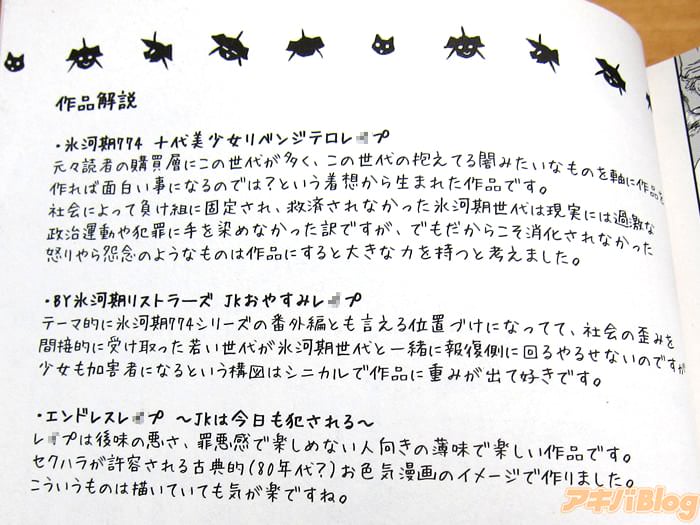 作品解説
・氷河期774 十代美少女リベンジテロレ プ
元々読者の購買層にこの世代が多く、この世代の抱えてる闇みたいなものを軸に作品を
作れば面白い事になるのでは?という着想から生まれた作品です。
社会によって負け組に固定され、救済されなかった氷河期世代は現実には過激な
政治運動や犯罪に手を染めなかった訳ですが、でもだからこそ消化されなかった
怒りやら怨念のようなものは作品にすると大きな力を持つと考えました。
・BY氷河期リストラーズ JKおやすみレ プ
テーマ的に氷河期774シリーズの番外編とも言える位置づけになってて、社会の歪みを
間接的に受け取った若い世代が氷河期世代と一緒に報復側に回るやるせないのですが
少女も加害者になるという構図はシニカルで作品に重みが出て好きです。
・エンドレスレ プ ～JKは今日も犯される～
レ プは後味の悪さ、罪悪感で楽しめない人向きの薄味で楽しい作品です。
セクハラが許容される古典的(80年代?)お色気漫画のイメージで作りました。
こういうものは描いていても気が楽ですね。
アキバBlog